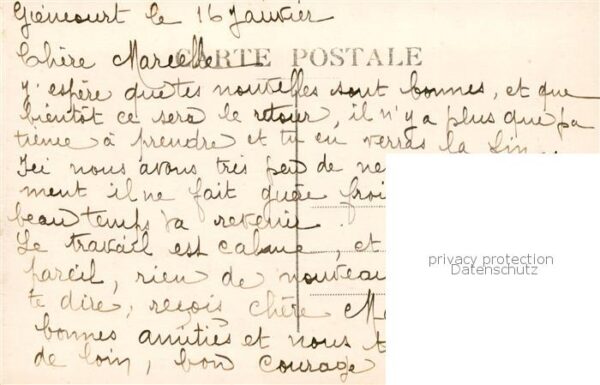 Giencourt le 16 Janvier
CARTE POSTALE
Chère Marcelle
J'espère que tes nouvelles sont bonnes, et que
bientôt ce sera le retour, il n'y a plus que pa
tience à prendre et tu en verras la fin..
Ici nous avons très peu de ne
ment il ne fait guère froi
beau temps va revenir.
Le travail est calme, et
pareil, rien de nouveau
te dire, reçois chère Ma
bonnes amitiés et nous t
de loin, bon courage
privacy protection
Datenschutz